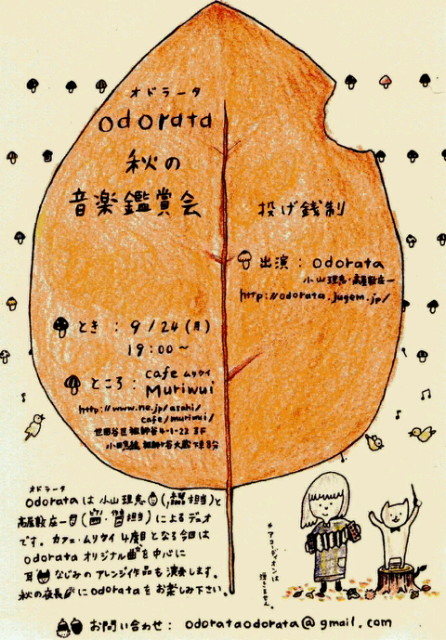 オドラータ
odorata
秋の
音楽鑑賞会
投げ銭制
出演：odorata
小山理恵・高尾敦左一
http://odorata.jugem.jp/
とき：9/24(月)
19:00～
ところ：cafe ムリウイ
Muriwui
http://www.ne.jp/asahi/
cafe/muriwui/
世田谷区祖師谷4-1-22 3F
小田急線 祖師ヶ谷大蔵
オドラータ
odorataは小山理恵(担当)と
(担当)によるデュオ
です。カフェ・ムリウイ4度目となる今回は
odorata オリジナル曲を中心に
耳なじみのアレンジ作品も演奏します。
秋の夜長にodorataをお楽しみ下さい。
＊アコーディオンは
弾きません。
お問い合わせ：odorataodorata@gmail.com